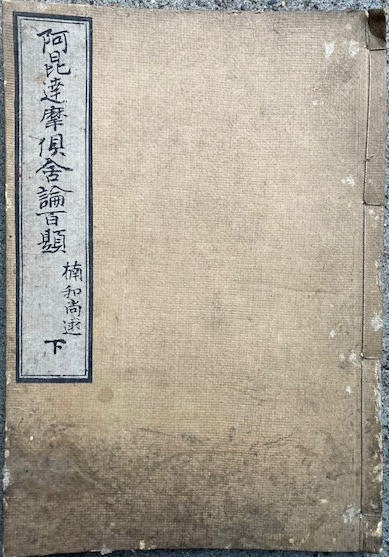 阿毘達摩俱舍論百題
楠和尚述
下